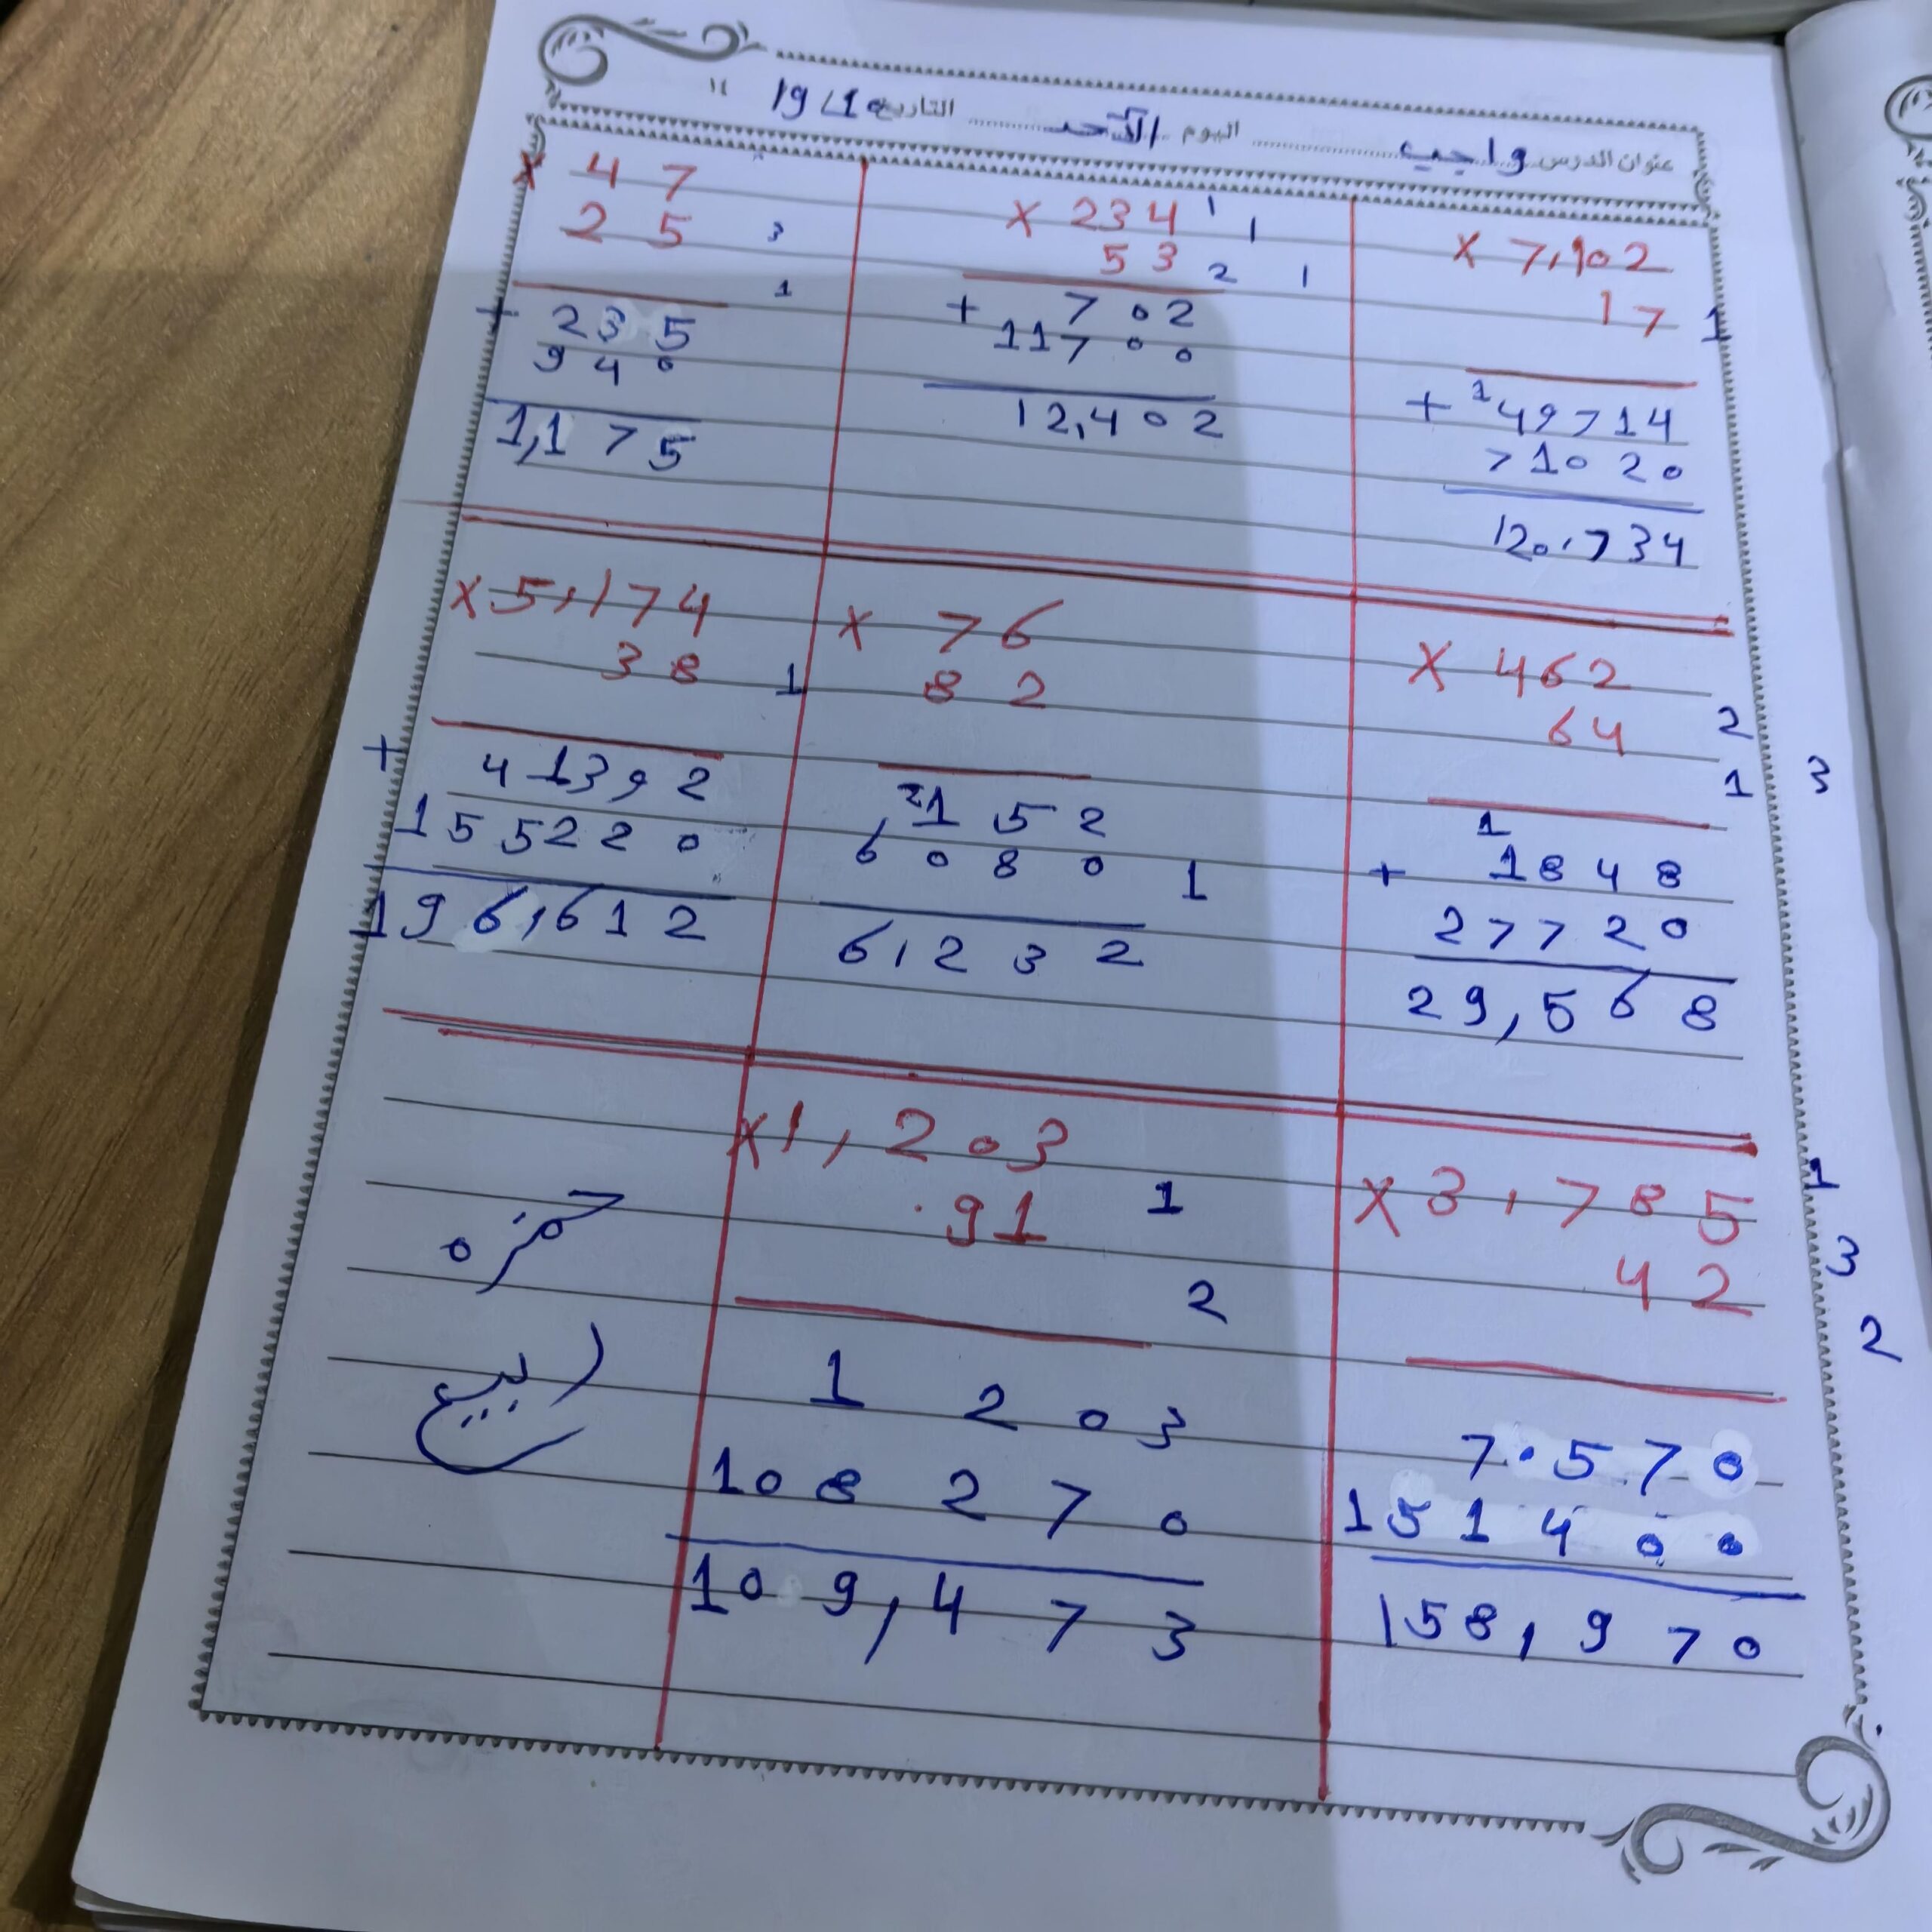 عنوان الدرس واجب اليوم الأحد التاريخ 19/10
× 47
25
3
1
+ 235
940
1,175
× 234
53
1 1
2 1
+ 702
11700
12,402
× 7,102
17
1
1
+ 49714
71020
120,734
× 5,174
38
1
+ 41392
155220
196,612
× 76
82
152
6080
1
6,232
× 462
64
2
1 3
1
+ 1848
27720
29,568
حمزه
ربيع
× 1,203
91
1
2
1203
108270
109,473
× 3,785
42
1
3
2
7570
151400
158,970